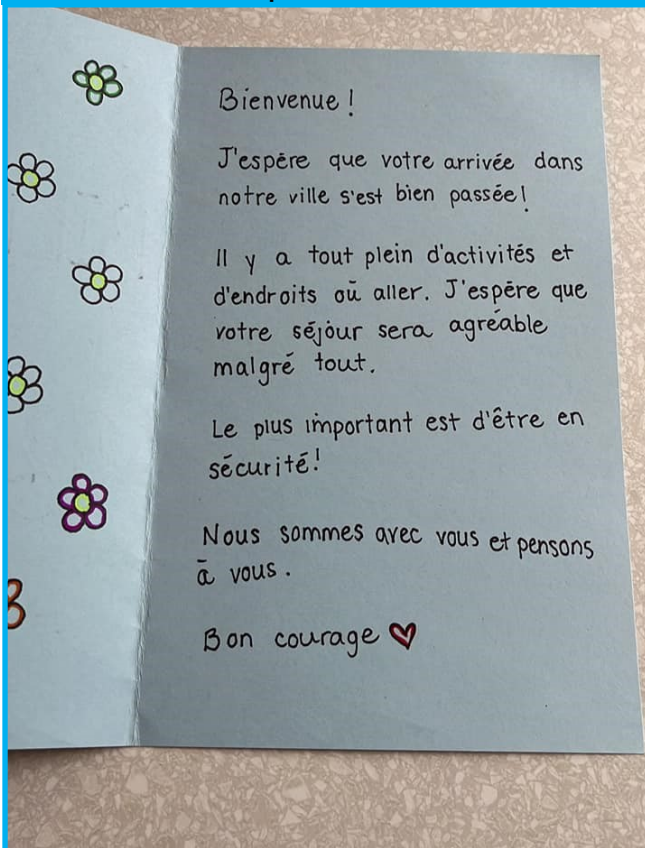 Bienvenue !
J'espère que votre arrivée dans
notre ville s'est bien passée!
Il y a tout plein d'activités et
d'endroits où aller. J'espère que
votre séjour sera agréable
malgré tout.
Le plus important est d'être en
sécurité!
Nous sommes avec vous et pensons
à vous.
Bon courage